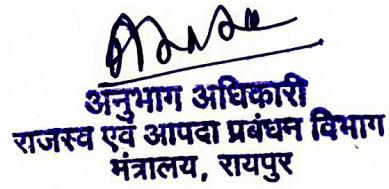 अनुभाग अधिकारी
राजस्व एवं आपदा प्रबंधन विभाग
मंत्रालय, रायपुर